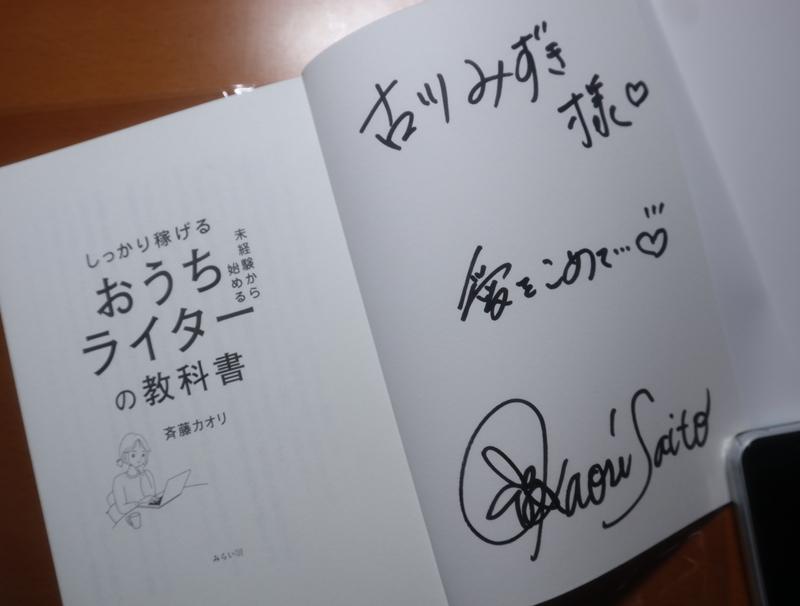 しっかり稼げる
未経験から
始める
おうち
ライター
の教科書
斉藤カオリ
みらい
古川みずき
様♡
愛をこめて…♡
Kaori Saito